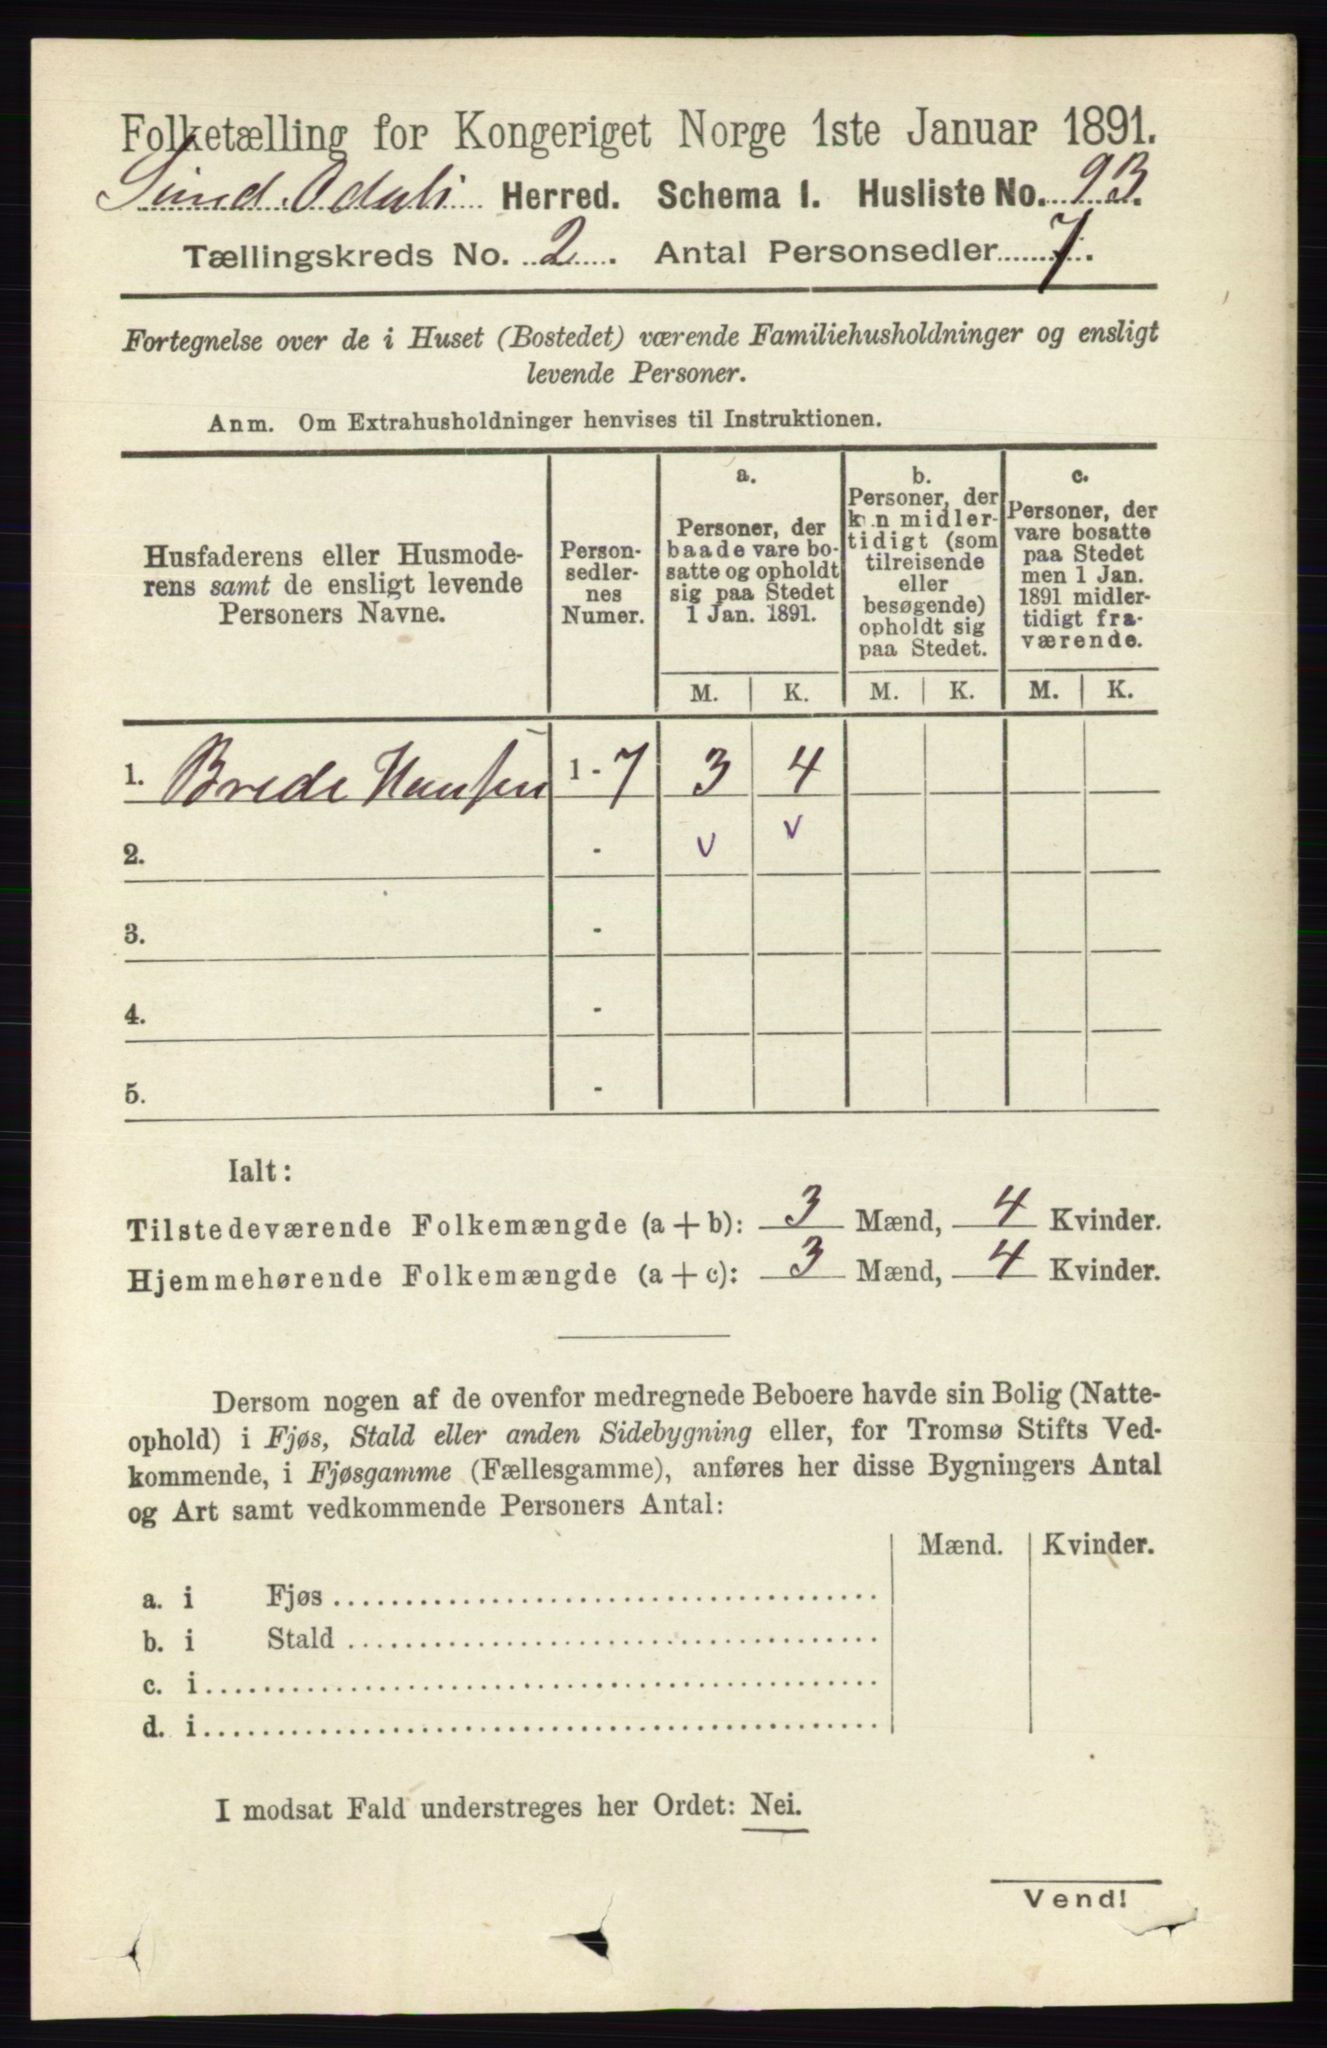 Folketælling for Kongeriget Norge 1ste Januar 1891.
Herred. Schema I. Husliste No. 93.
Tællingskreds No. 2. Antal Personsedler 7.
Fortegnelse over de i Huset (Bostedet) værende Familiehusholdninger og ensligt
levende Personer.
Anm. Om Extrahusholdninger henvises til Instruktionen.
Husfaderens eller Husmode-
rens samt de ensligt levende
Personers Navne.
Person-
sedler-
nes
Numer.
a.
Personer, der
baade vare bo-
satte og opholdt
sig paa Stedet
1 Jan. 1891.
b.
Personer, der
kun midler-
tidigt (som
tilreisende
eller
besøgende)
opholdt sig
paa Stedet.
c.
Personer, der
vare bosatte
paa Stedet
men 1 Jan.
1891 midler-
tidigt fra-
værende.
M. K. M. K. M. K.
1. Brede Hansen 1 - 7 3 4
2. - v v
3. -
4. -
5. -
Ialt:
Tilstedeværende Folkemængde (a + b): 3 Mænd, 4 Kvinder.
Hjemmehørende Folkemængde (a + c): 3 Mænd, 4 Kvinder.
Dersom nogen af de ovenfor medregnede Beboere havde sin Bolig (Natte-
ophold) i Fjøs, Stald eller anden Sidebygning eller, for Tromsø Stifts Ved-
kommende, i Fjøsgamme (Fællesgamme), anføres her disse Bygningers Antal
og Art samt vedkommende Personers Antal:
Mænd. Kvinder.
a. i Fjøs
b. i Stald
c. i
d. i
I modsat Fald understreges her Ordet: Nei.
Vend!